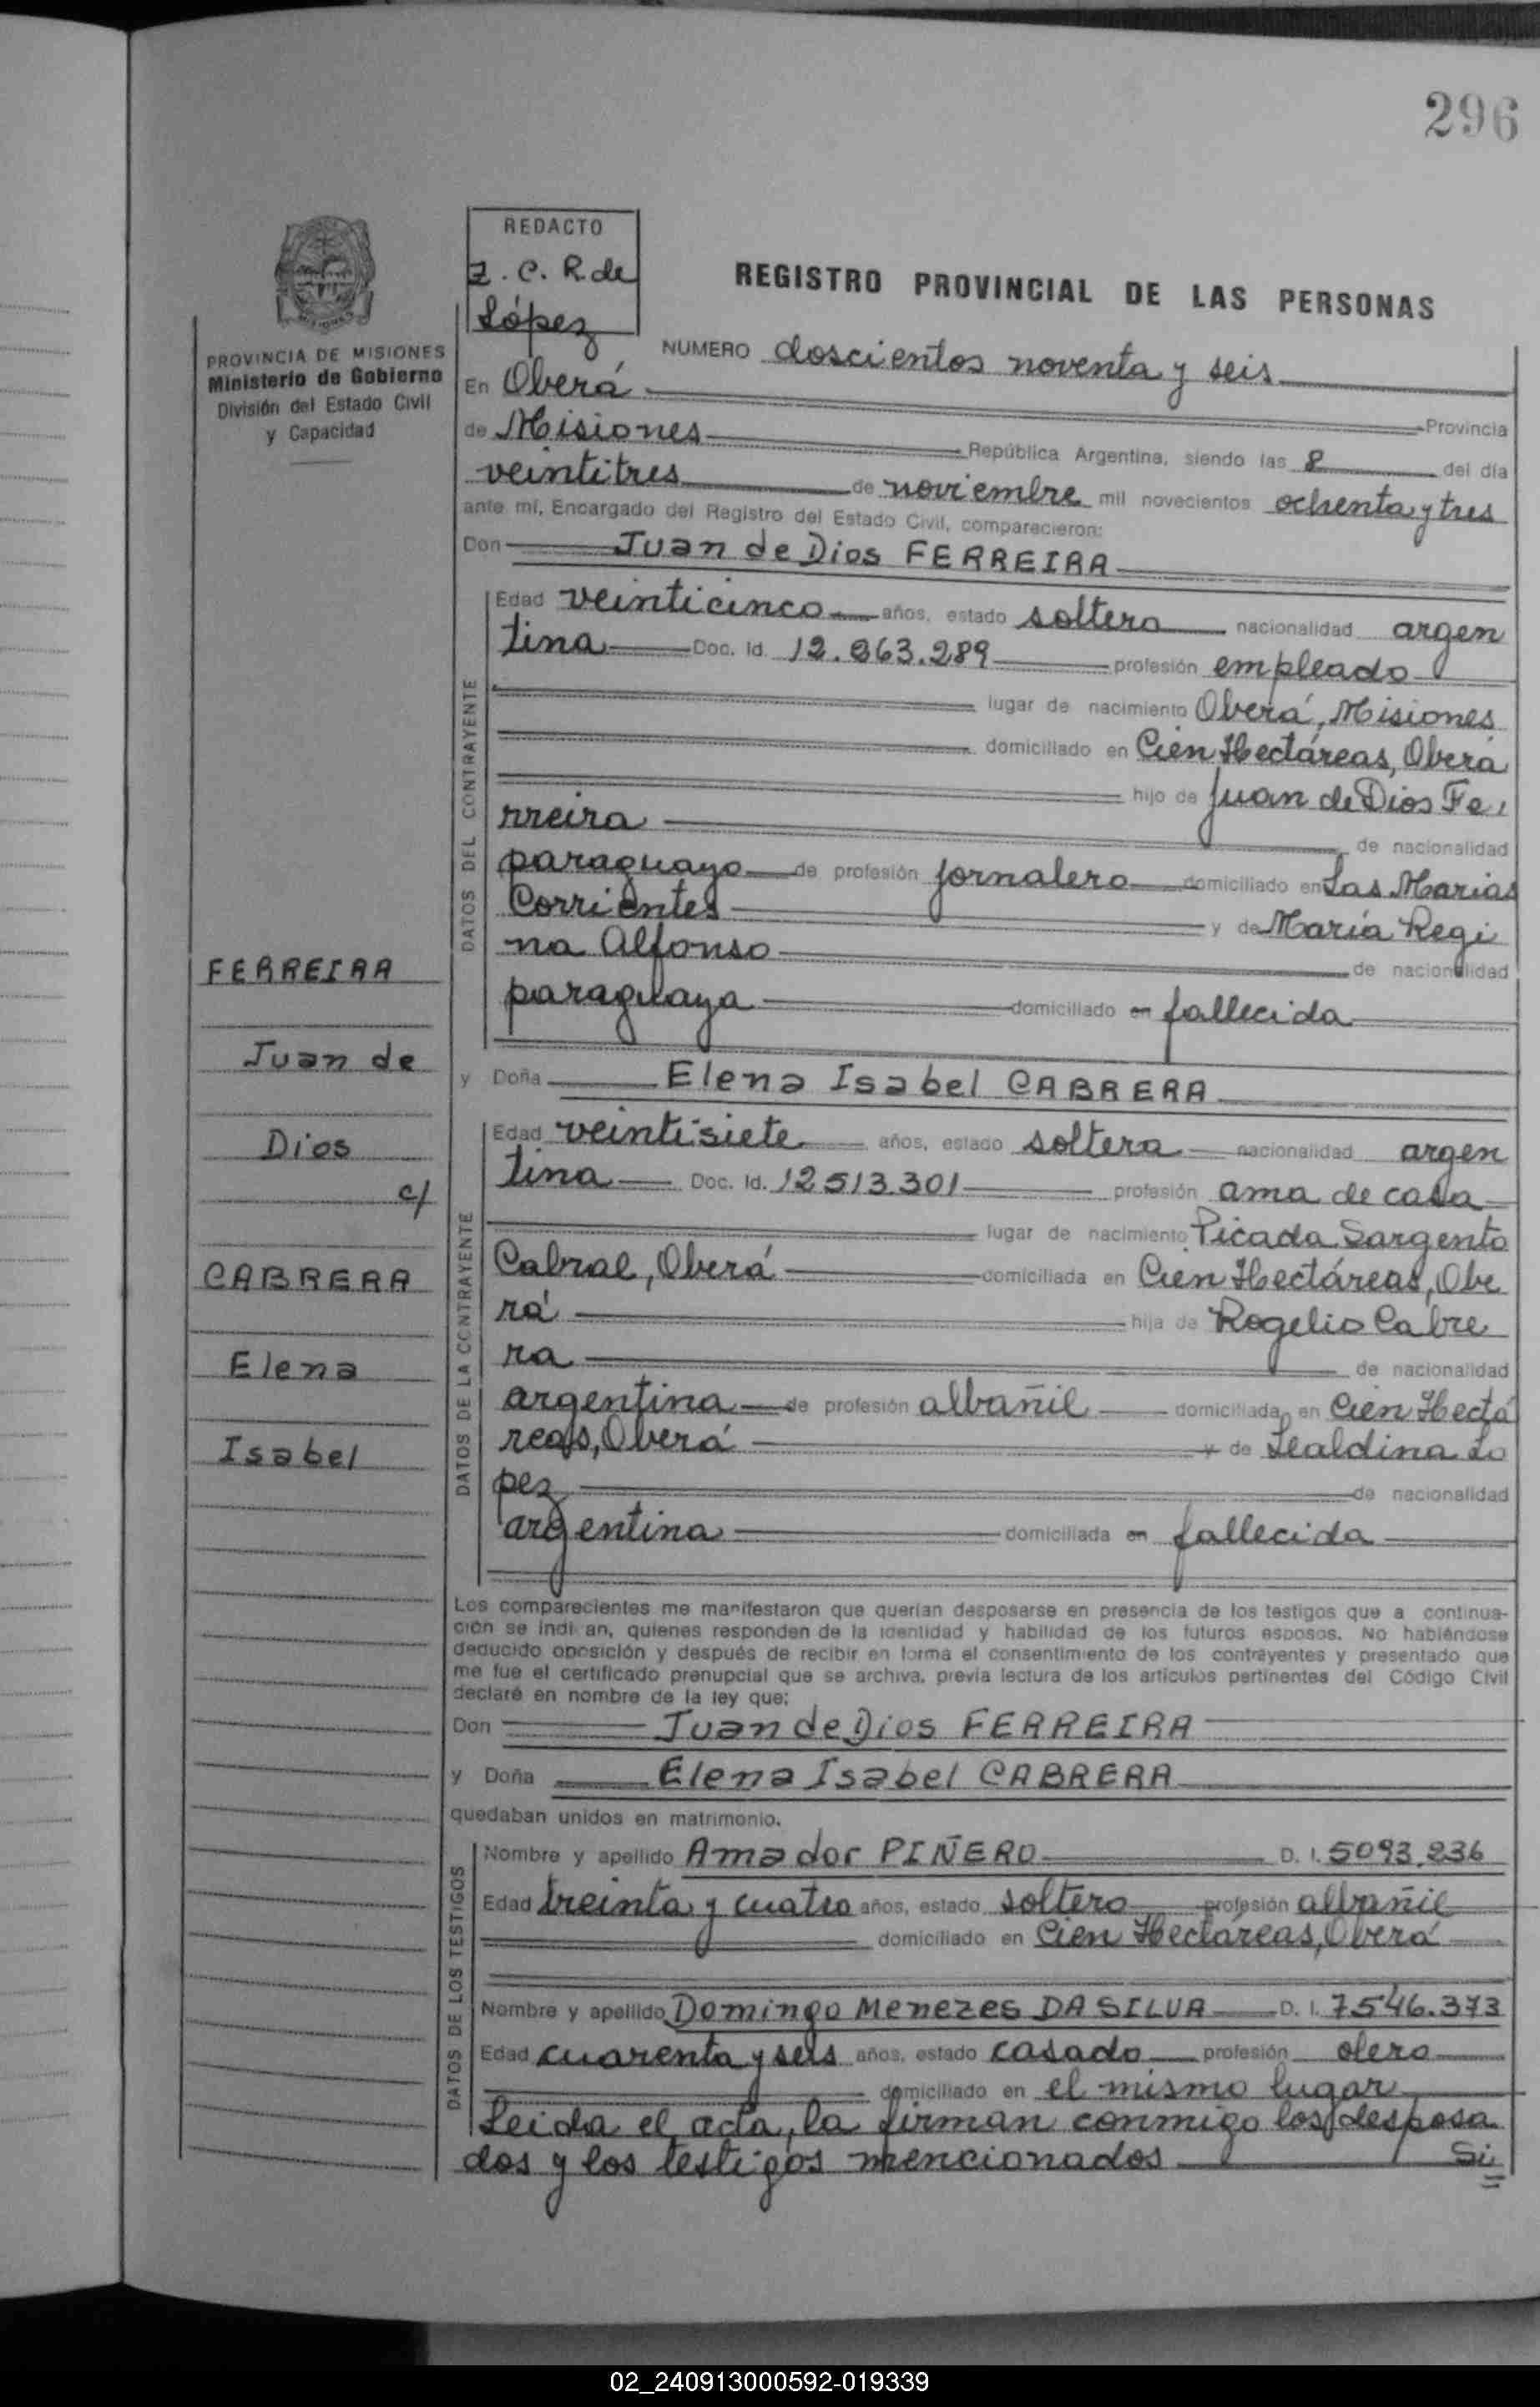 296
REDACTO
Z. C. R. de
López
REGISTRO PROVINCIAL DE LAS PERSONAS
PROVINCIA DE MISIONES
Ministerio de Gobierno
División del Estado Civil
y Capacidad
NUMERO doscientos noventa y seis
En Oberá Provincia
de Misiones República Argentina, siendo las 8 del día
veintitres de noviembre mil novecientos ochenta y tres
ante mí, Encargado del Registro del Estado Civil, comparecieron:
Don Juan de Dios FERREIRA
DATOS DEL CONTRAYENTE
Edad veinticinco años, estado soltero nacionalidad argen
tina Doc. Id. 12.863.289 profesión empleado
lugar de nacimiento Oberá, Misiones
domiciliado en Cien Hectáreas, Oberá
hijo de Juan de Dios Fe
rreira de nacionalidad
paraguayo de profesión jornalero domiciliado en Las Marias
Corrientes y de María Regi
na Alfonso de nacionalidad
paraguaya domiciliado en fallecida
y Doña Elena Isabel CABRERA
DATOS DE LA CONTRAYENTE
Edad veintisiete años, estado soltera nacionalidad argen
tina Doc. Id. 12513.301 profesión ama de casa
lugar de nacimiento Picada Sargento
Cabral, Oberá domiciliada en Cien Hectáreas, Obe
rá hija de Rogelio Cabre
ra de nacionalidad
argentina de profesión albañil domiciliada en Cien Hectá
reas, Oberá y de Lealdina Lo
pez de nacionalidad
argentina domiciliada en fallecida
FERREIRA
Juan de
Dios
c/
CABRERA
Elena
Isabel
Los comparecientes me manifestaron que querían desposarse en presencia de los testigos que a continua-
ción se indi an, quienes responden de la identidad y habilidad de los futuros esposos. No habiéndose
deducido oposición y después de recibir en forma el consentimiento de los contrayentes y presentado que
me fue el certificado prenupcial que se archiva, previa lectura de los artículos pertinentes del Código Civil
declaré en nombre de la ley que:
Don Juan de Dios FERREIRA
y Doña Elena Isabel CABRERA
quedaban unidos en matrimonio.
DATOS DE LOS TESTIGOS
Nombre y apellido Amador PIÑERO D. I. 5093.236
Edad treinta y cuatro años, estado soltero profesión albañil
domiciliado en Cien Hectáreas, Oberá
Nombre y apellido Domingo Menezes DA SILVA D. I. 7546.373
Edad cuarenta y seis años, estado casado profesión olero
domiciliado en el mismo lugar
Leida el acta, la firman conmigo los desposa
dos y los testigos mencionados Si
02_240913000592-019339